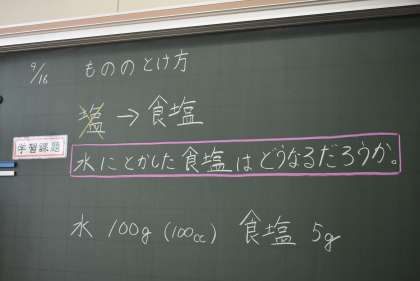 9/16 もののとけ方
塩 → 食塩
学習課題
水にとかした食塩はどうなるだろうか。
水 100g (100cc) 食塩 5g